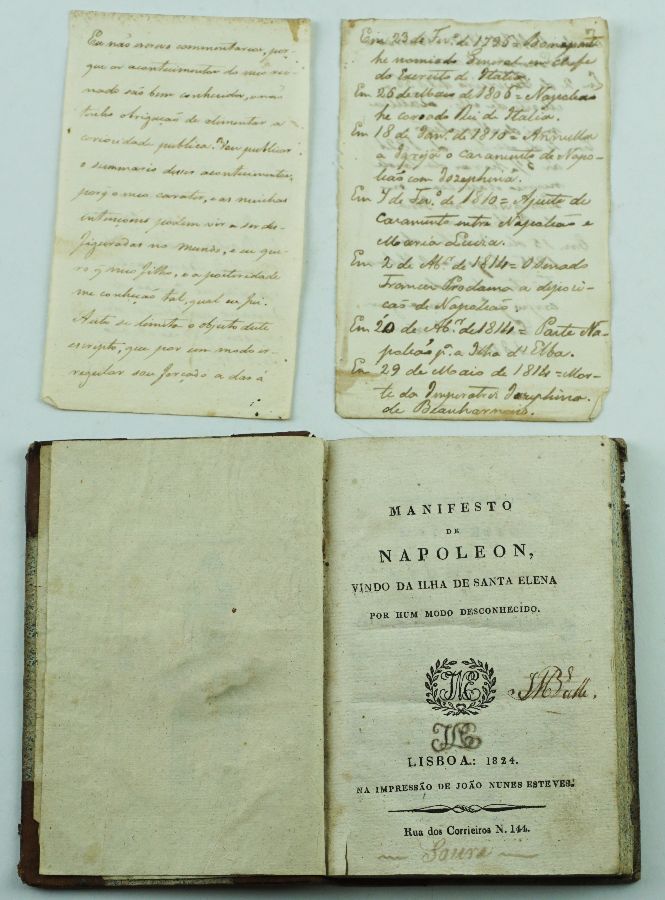 Eu não escrevo commentarios, por-
que os acontecimentos do meu rei-
nado são bem conhecidos, e não
tenho obrigação de alimentar a
coriosidade publica. Vou publicar
o summario desses acontecimentos,
porq o meu carater, e as minhas
intencoens podem vir a ser des-
figuradas no mundo, e eu que-
ro q meu filho, e a posteridade
me conheção tal, qual eu fui.
A isto se limita o objeto deste
escrypto, que por um modo ir-
regular sou forçado a dar á
Em 23 de Fevº. de 1796 = Bonaparte
he nomiado General em Chefe
do Exercito de Italia.
Em 26 de Maio de 1805 = Napoleão
he coroado Rei de Italia.
Em 18 de Janº. de 1810 = Annulla
a Igreja o Casamento de Napo-
leão com Jozephina.
Em 7 de Fevº. de 1810 = Ajuste de
Casamento entre Napoleão e
Maria Luiza.
Em 2 de Abril de 1814 = O Senado
Francez Proclama a deposi-
cão de Napoleão.
Em 20 de Abril de 1814 = Parte Na-
poleão pª. a Ilha d'Elba.
Em 29 de Maio de 1814 = Mor-
te da Imperatriz Jozephina
de Beauharnais.
MANIFESTO
DE
NAPOLEON,
VINDO DA ILHA DE SANTA ELENA
POR HUM MODO DESCONHECIDO.
LISBOA: 1824.
NA IMPRESSÃO DE JOÃO NUNES ESTEVES.
Rua dos Corrieiros N. 144.